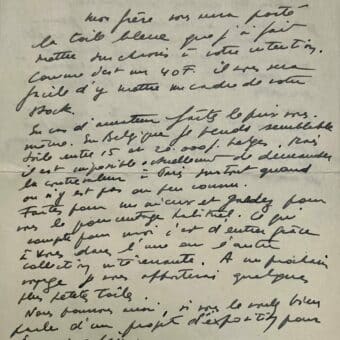 mon frère vous aura porté
la toile bleue que j'ai fait
mettre sur chassis à votre intention.
Comme c'est un 40F. il vous sera
facile d'y mettre un cadre de votre
stock.
En cas d'amateur faites le prix vous
même. En Belgique je vends semblable
toile entre 15 et 20.000 f. belges. Mais
il est impossible actuellement de demander
la contrevaleur à Paris surtout quand
on n'y est pas ou peu connu.
Faites pour un mieux et gardez pour
vous le pourcentage habituel. Ce qui
compte pour moi c'est d'entrer grâce
à vous dans l'une ou l'autre
collection intéressante. A un prochain
voyage je vous apporterai quelques
plus petites toiles.
Nous pourrons aussi, si vous le voulez bien
parler d'un projet d'exposition pour